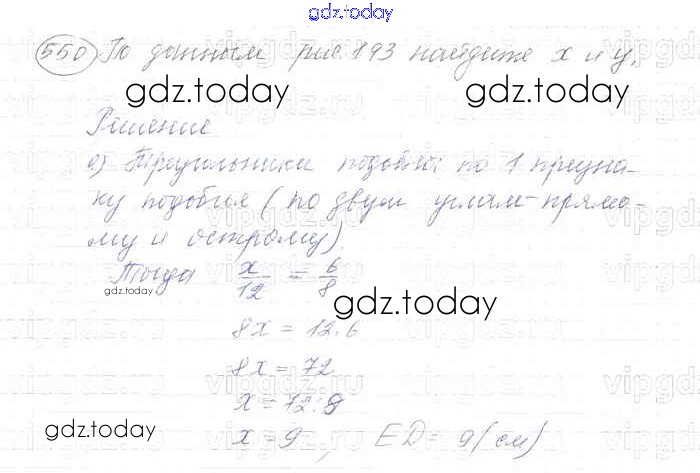 gdz.today
550 По данным рис. 193 найдите x и y.
gdz.today gdz.today
Решение
а) Треугольники подобны по 1 призна-
ку подобия (по двум углам - прямо-
му и острому).
Тогда x/12 = 6/8
gdz.today gdz.today
8x = 12·6
8x = 72
x = 72:8
gdz.today
x = 9, ED = 9 (см)